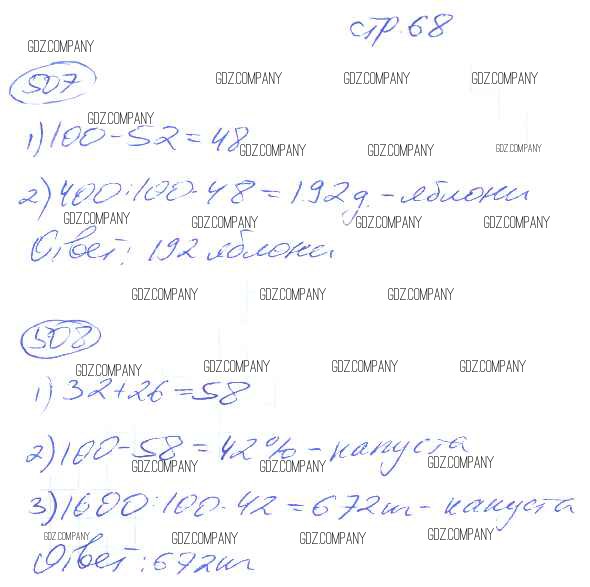 стр. 68
GDZ.COMPANY
507
GDZ.COMPANY GDZ.COMPANY GDZ.COMPANY
GDZ.COMPANY
1) 100 - 52 = 48
GDZ.COMPANY GDZ.COMPANY GDZ.COMPANY
2) 400 : 100 · 48 = 192 д. - яблони
GDZ.COMPANY GDZ.COMPANY GDZ.COMPANY GDZ.COMPANY
Ответ: 192 яблони
GDZ.COMPANY GDZ.COMPANY GDZ.COMPANY
508
GDZ.COMPANY GDZ.COMPANY GDZ.COMPANY GDZ.COMPANY
1) 32 + 26 = 58
2) 100 - 58 = 42% - капуста
GDZ.COMPANY GDZ.COMPANY GDZ.COMPANY
3) 1600 : 100 · 42 = 672 т - капуста
GDZ.COMPANY GDZ.COMPANY GDZ.COMPANY GDZ.COMPANY
Ответ: 672 т